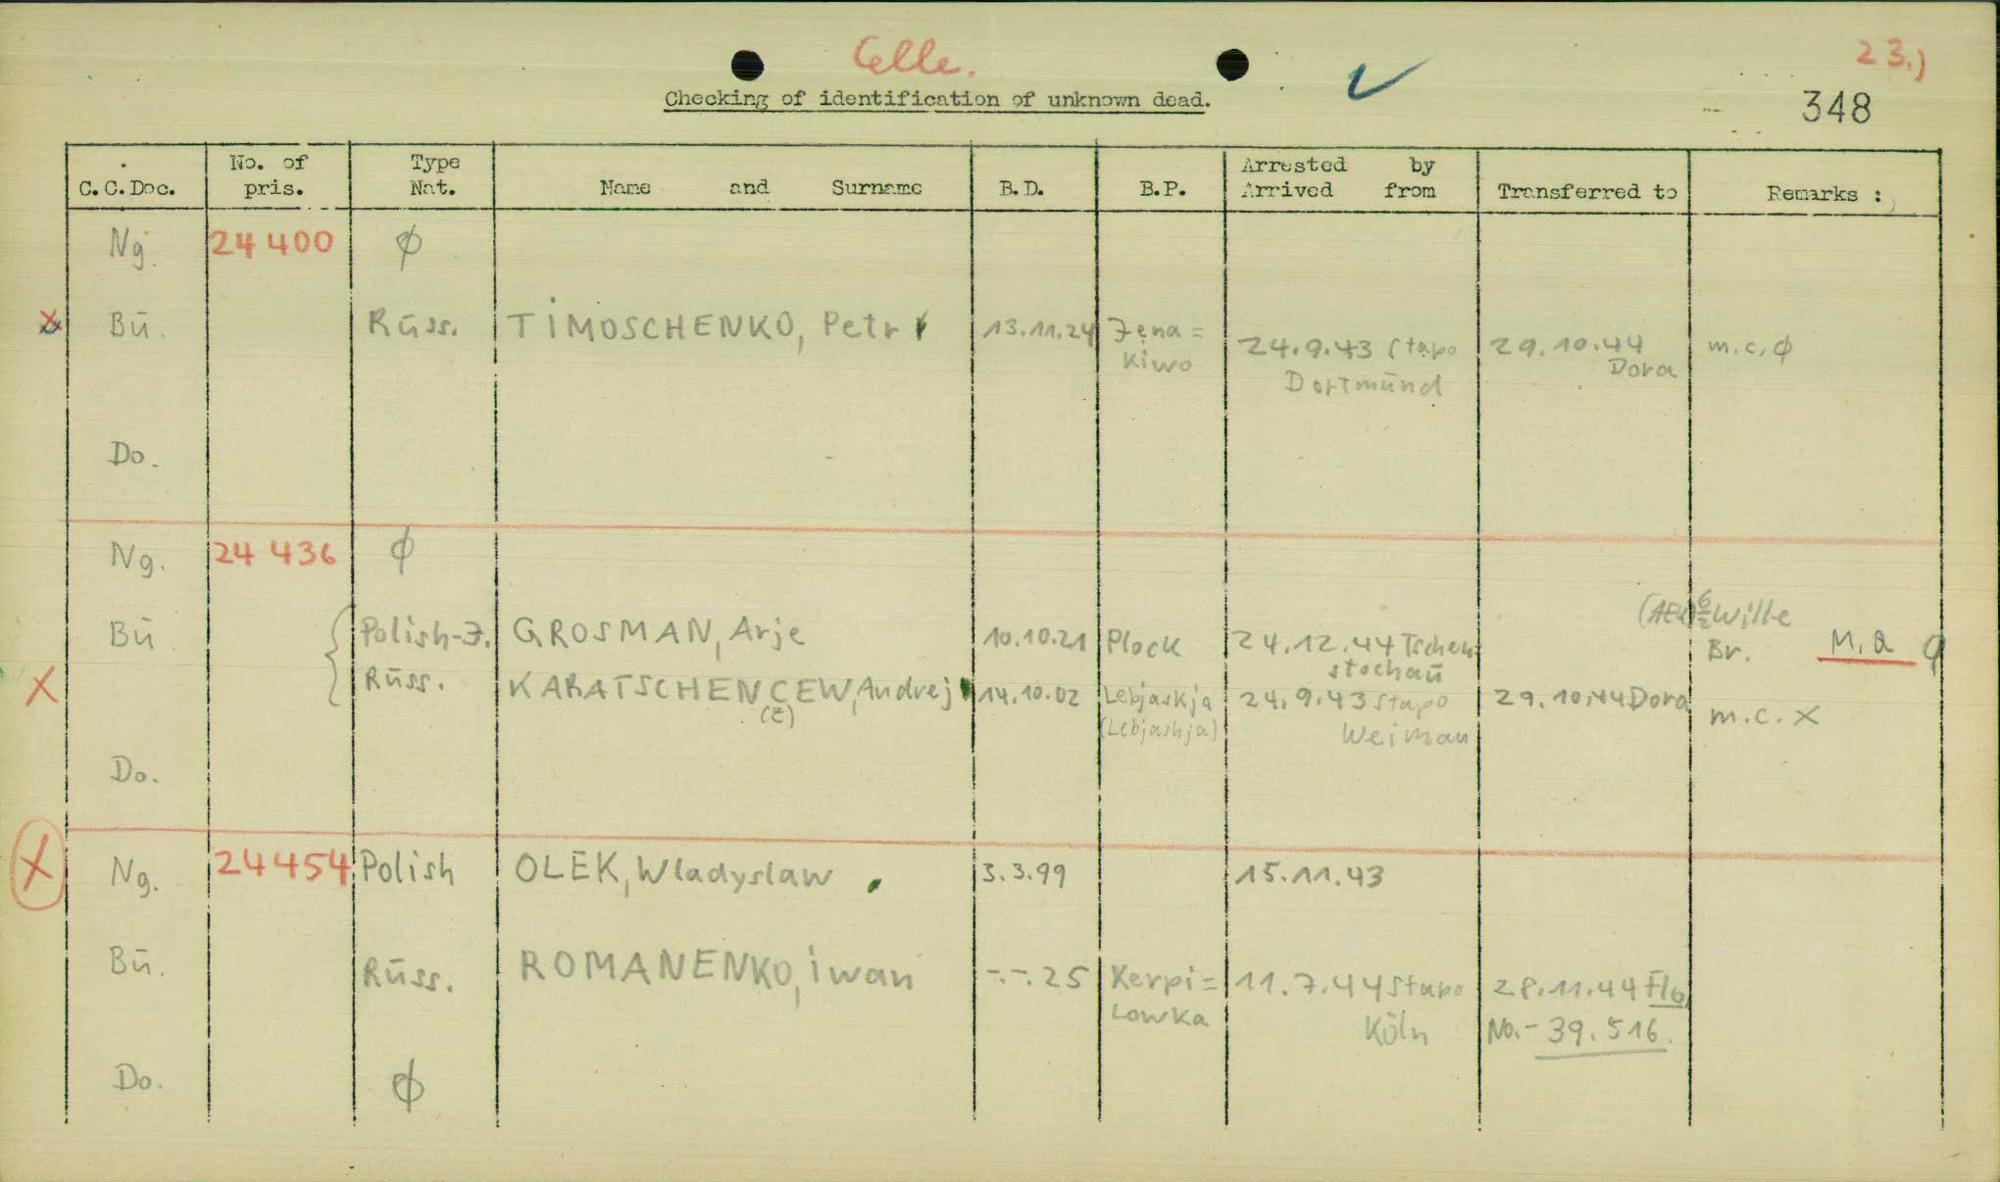 Celle.
23.)
Checking of identification of unknown dead.
348
C.C.Doc. No. of pris. Type Nat. Name and Surname B.D. B.P. Arrested by Arrived from Transferred to Remarks :
Ng. 24 400 ϕ
x Bū. Rūss. TIMOSCHENKO, Petr 13.11.24 Jena=
Kiwo
24.9.43 Stapo 29.10.44 m.c. ϕ
Dortmūnd Dora
Do.
Ng. 24 436 ϕ
6/2 Wille
Bū Polish-J. GROSMAN, Arje 10.10.21 Plock 24.12.44 Tschen- Br. M.a
stochaū
X Rūss. KARATSCHENCEW, Andrej 14.10.02 Lebjaskja 24.9.43 Stapo 29.10.44 Dora m.c. X
(Z) (Lebjashja) Weimar
Do.
X Ng. 24454 Polish OLEK, Wladyslaw 3.3.99 15.11.43
Bū. Rūss. ROMANENKO, iwan -.-.25 Kerpi= 11.7.44 Stapo 28.11.44 Flb
Lowka Köln No.- 39.516.
Do. ϕ